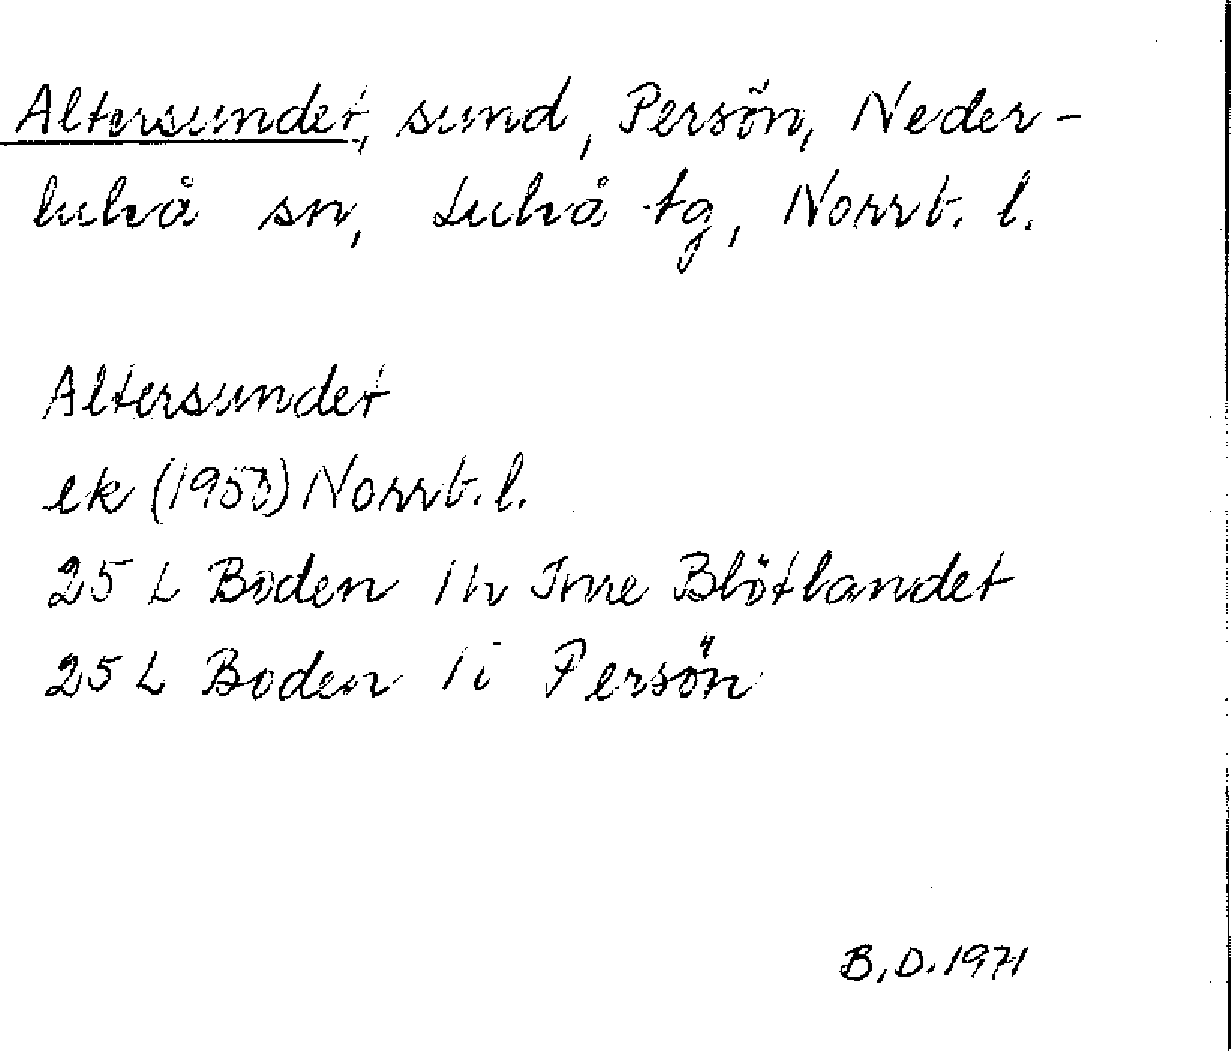 Altersundet, sund, Persön, Neder-
luleå sn, Luleå tg, Norrb. l.
Altersundet
ek (1950) Norrb. l.
25 L Boden 1h Inre Blötlandet
25 L Boden 1i Persön
B.D. 1971